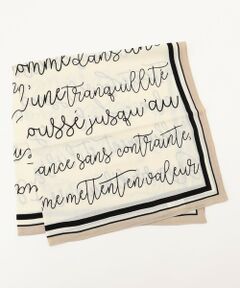 comme dans un
d'une tranquillité
oussé jusqu'au
ance sans contrainte,
me mettent en valeur